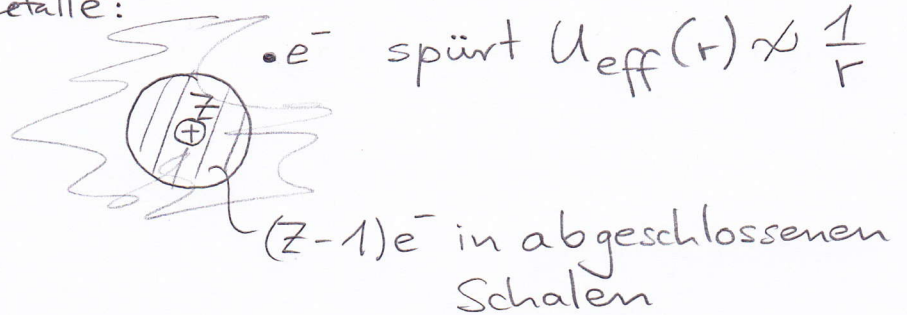 etalle:
Z
+
• e⁻ spürt U_eff(r) ≁ 1/r
(Z-1)e⁻ in abgeschlossenen
Schalen